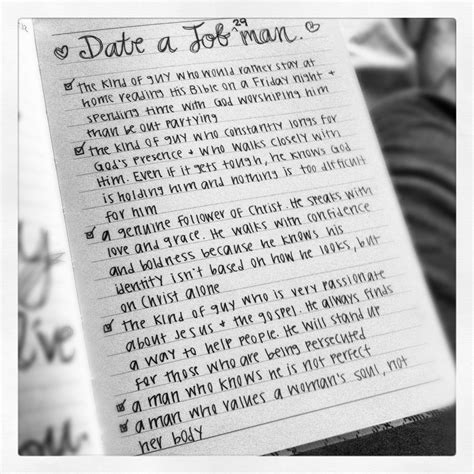 ♡ Date a Job 29 man. ♡
☑ the kind of guy who would rather stay at
home reading His Bible on a Friday night +
spending time with God worshiping him
than be out partying
☑ the kind of guy who constantly longs for
God's presence + who walks closely with
Him. Even if it gets tough, he knows God
is holding him and nothing is too difficult
for him
☑ a genuine follower of Christ. He speaks with
love and grace. He walks with confidence
and boldness because he knows his
identity isn't based on how he looks, but
on Christ alone
☑ the kind of guy who is very passionate
about Jesus + the gospel. He always finds
a way to help people. He will stand up
for those who are being persecuted
☑ a man who knows he is not perfect
☑ a man who values a woman's soul, not
her body